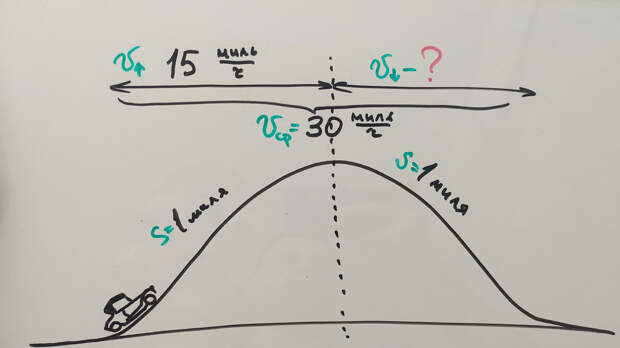 v↑ 15 миль/г
v↓ – ?
vср = 30 миль/г
S = 1 миля
S = 1 миля